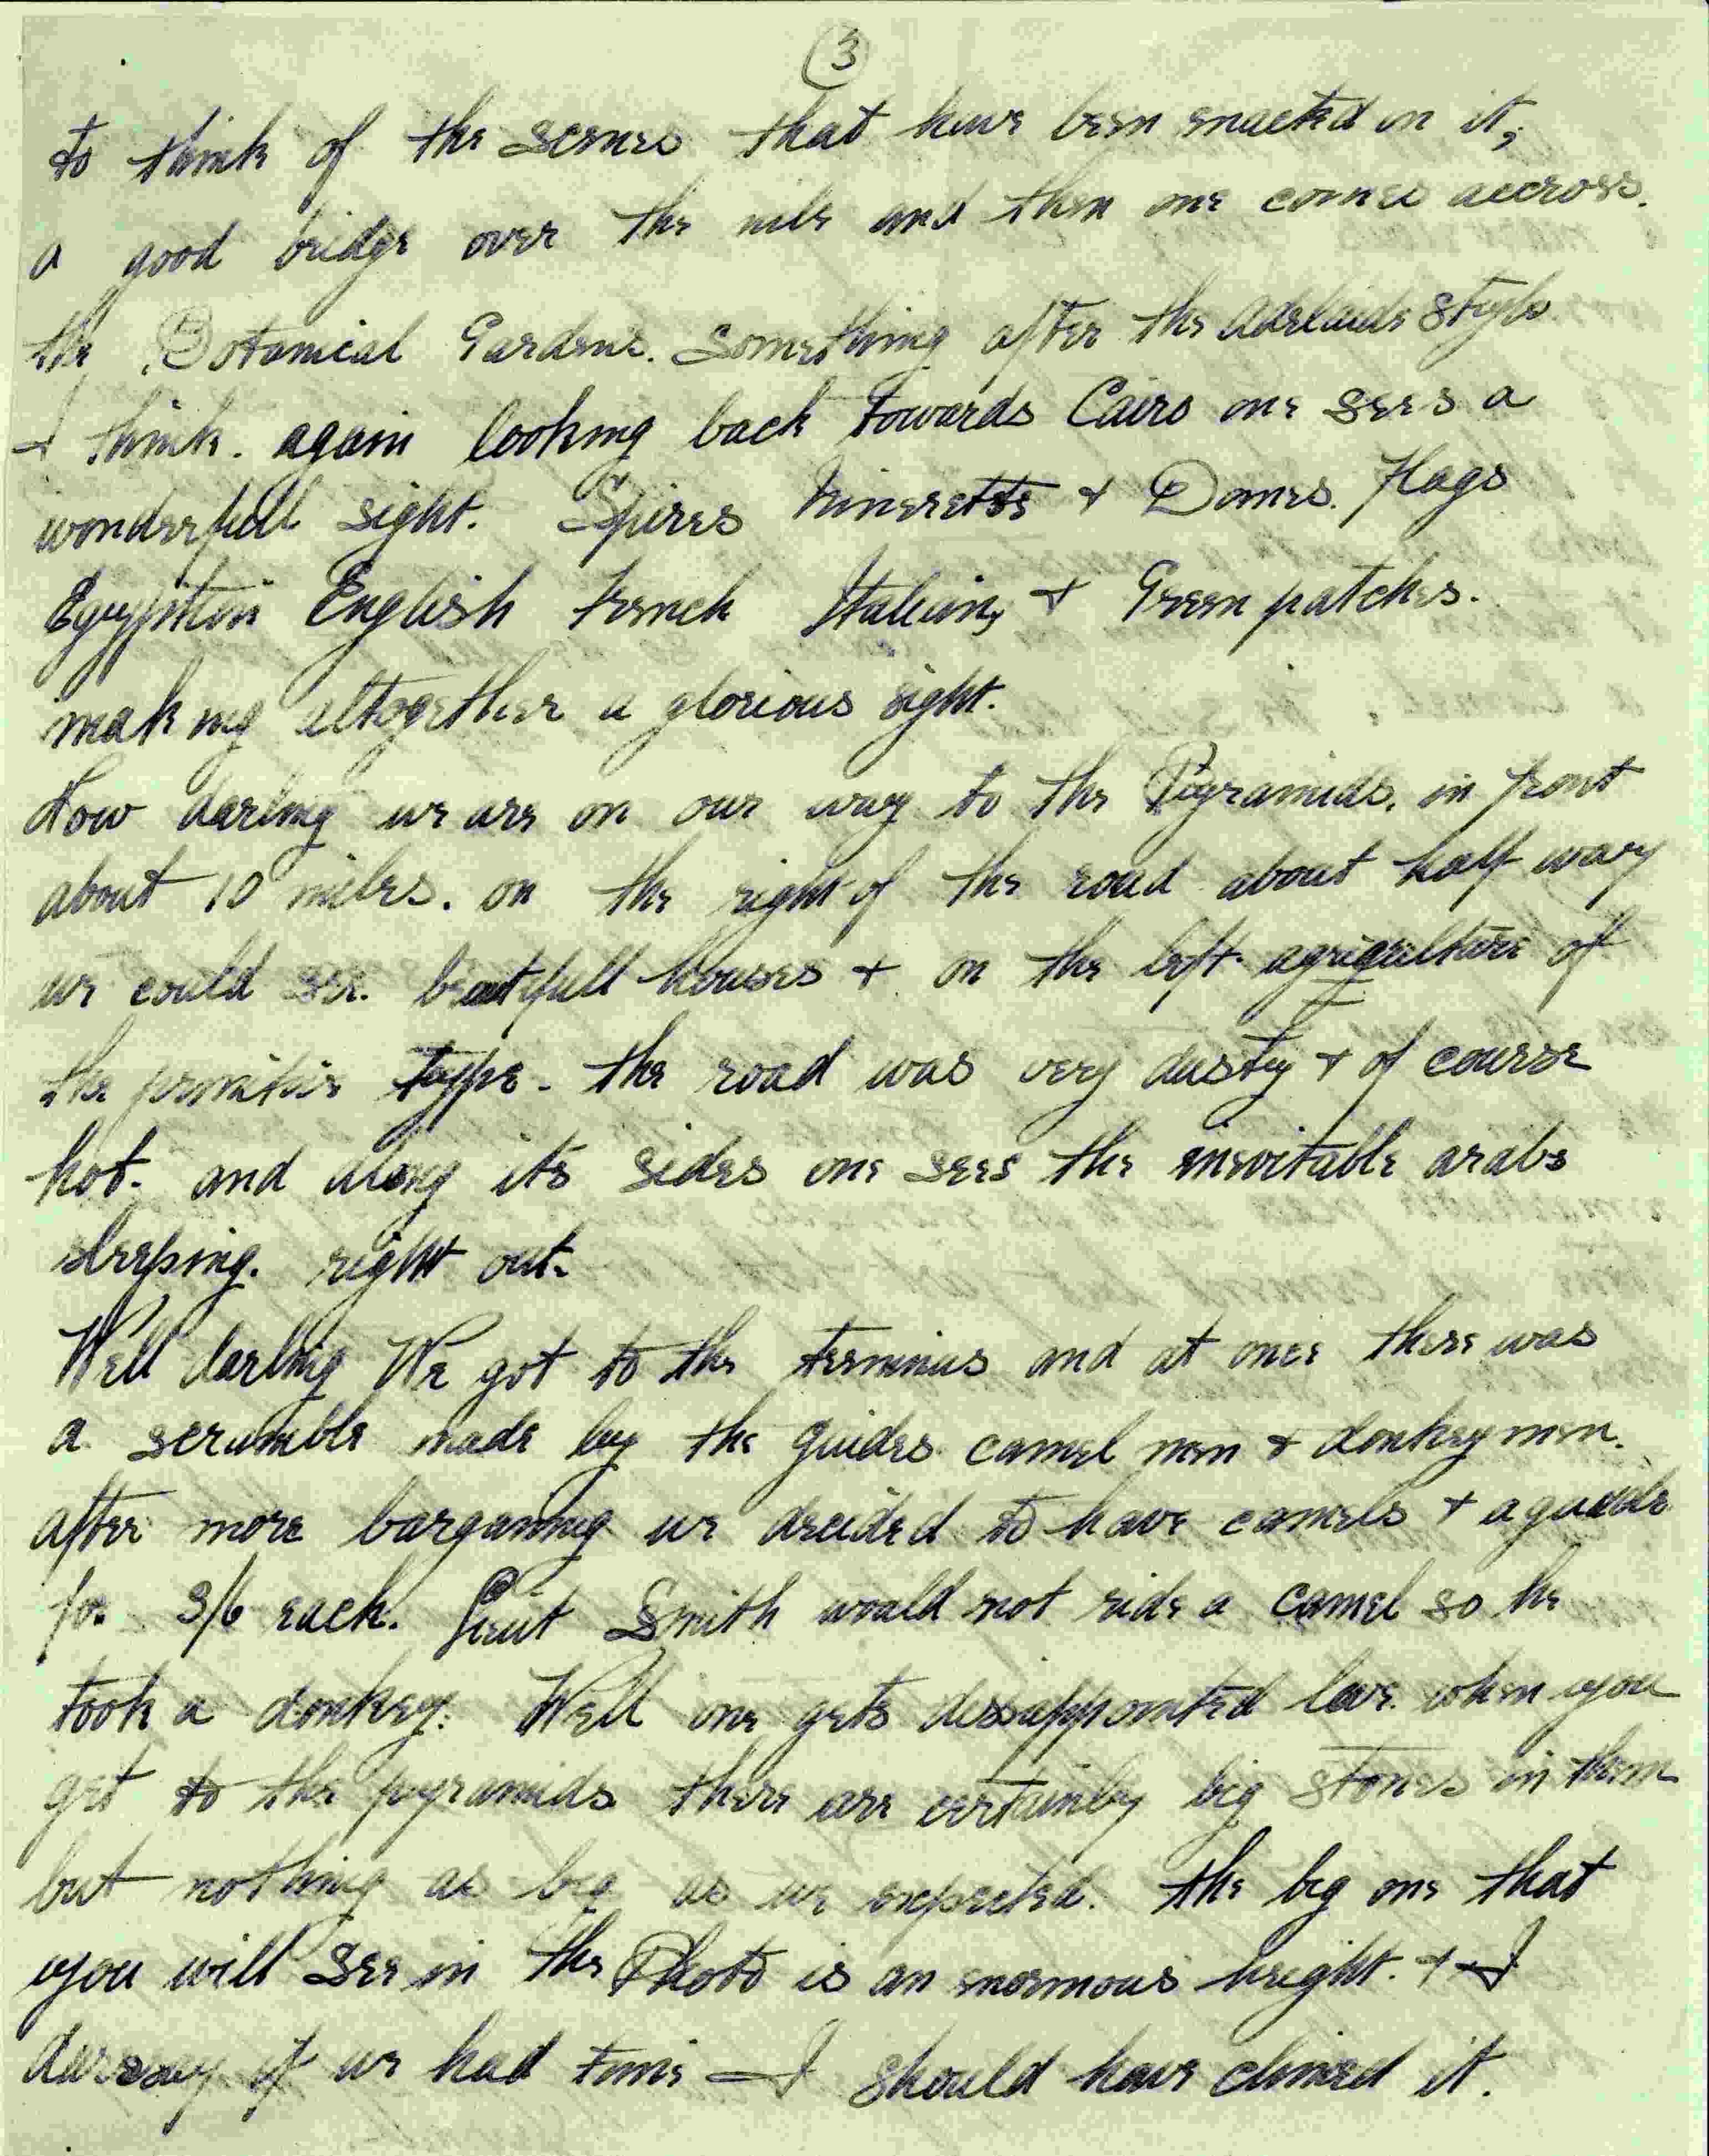 3
to think of the scenes that have been enacted on it,
a good bridge over the nile and then one comes accross.
the Botanical Gardens. Something after the Adelaide style
I think. again looking back towards Cairo one sees a
wonderfull sight. Spires Mineretts + Domes. Flags
Egyyption English French Italian, + Green patches.
making altogether a glorious sight.
Now darling we are on our way to the Pyramids. in front
about 10 miles. on the right of the road about half way
we could see. beautfull houses + on the left agriqulture of
the primitive type - the road was very dusty + of course
hot. and along its sides one sees the inevitable arabs
sleeping. right out.
Well darling We got to the terminus and at once there was
a scramble made by the guides camel men + donkey men.
after more barganing we decided to have camels + a guide
for 3/6 each. Lieut Smith would not ride a camel so he
took a donkey. Well one gets dissappointed love when you
get to the pyramids there are certainly big stones in them
but nothing as big as we expected. the big one that
you will see in the Photo is an enormous height. + I
daresay if we had time I should have climed it.